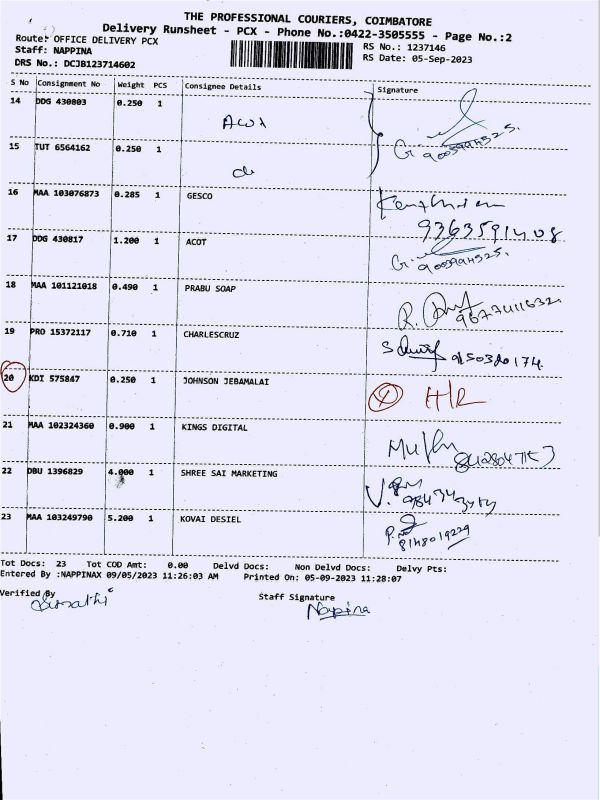 THE PROFESSIONAL COURIERS, COIMBATORE
Delivery Runsheet - PCX - Phone No.:0422-3505555 - Page No.:2
Route: OFFICE DELIVERY PCX
RS No.: 1237146
Staff: NAPPINA
RS Date: 05-Sep-2023
DRS No.: DCJB123714602
S No Consignment No Weight PCS Consignee Details Signature
14 DDG 430803 0.250 1
ACOT
15 TUT 6564162 0.250 1
do
16 MAA 103076873 0.285 1 GESCO
9363591408
17 DDG 430817 1.200 1 ACOT
18 MAA 101121018 0.490 1 PRABU SOAP
19 PRO 15372117 0.710 1 CHARLESCRUZ
20 KDI 575847 0.250 1 JOHNSON JEBAMALAI H/R
21 MAA 102324360 0.900 1 KINGS DIGITAL
22 DBU 1396829 4.000 1 SHREE SAI MARKETING
23 MAA 103249790 5.200 1 KOVAI DESIEL
8148019229
Tot Docs: 23 Tot COD Amt: 0.00 Delvd Docs: Non Delvd Docs: Delvy Pts:
Entered By :NAPPINAX 09/05/2023 11:26:03 AM Printed On: 05-09-2023 11:28:07
Verified By
Staff Signature
Nappina